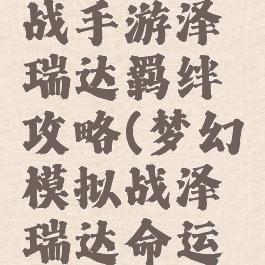 战手游泽
瑞达羁绊
攻略(梦幻
模拟战泽
瑞达命运